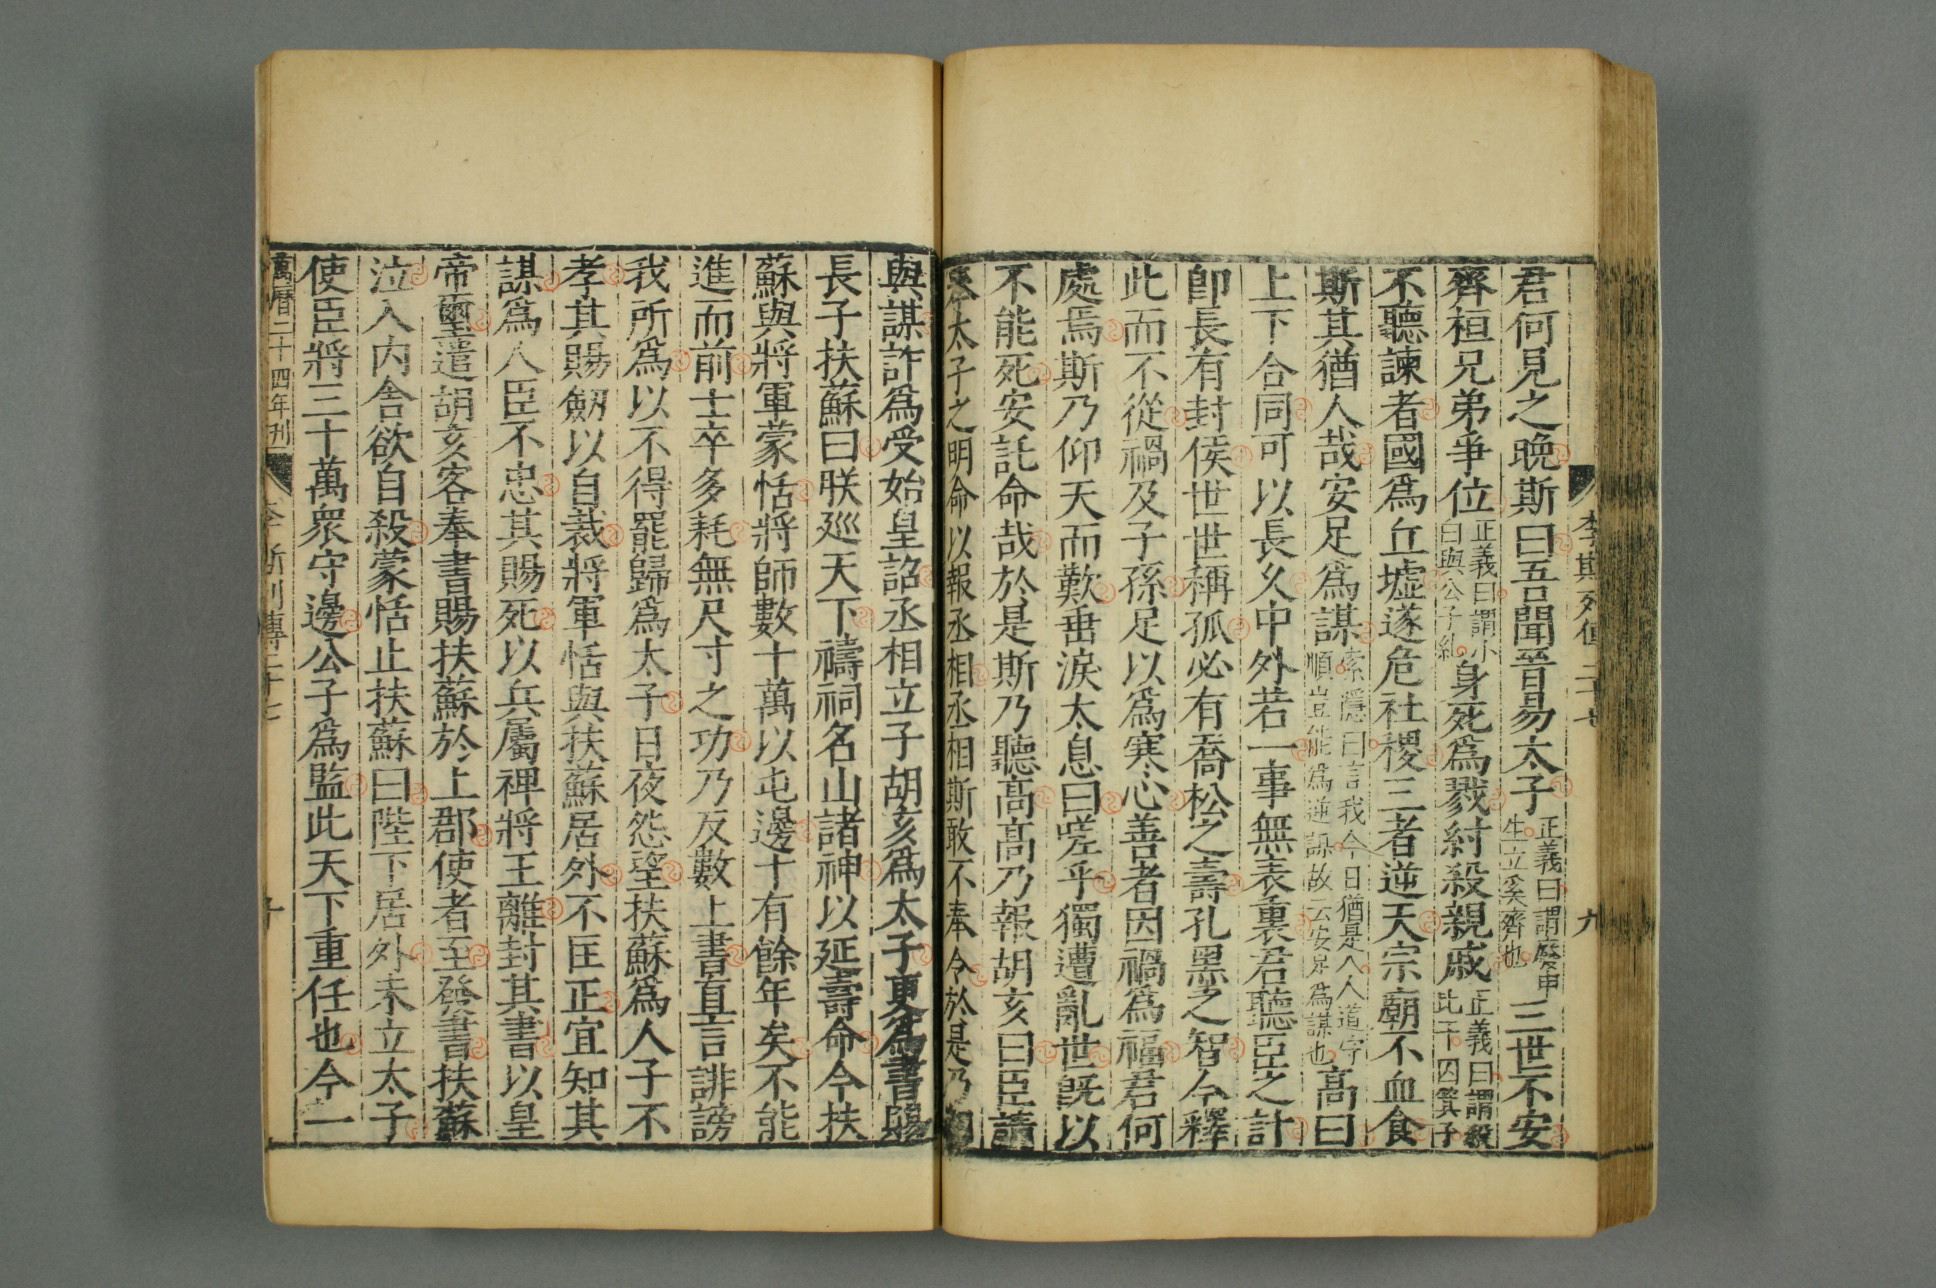 李斯列傳二十七
九
君何見之晚斯曰吾聞晉易太子正義曰謂廢申生立奚齊也三世不安
齊桓兄弟爭位正義曰謂小白與公子糾身死爲戮紂殺親戚正義曰謂殺比干囚箕子
不聽諫者國爲丘墟遂危社稷三者逆天宗廟不血食
斯其猶人哉安足爲謀索隱曰言我今日猶是人人道守順豈能爲逆謀故云安足爲謀也高曰
上下合同可以長久中外若一事無表裏君聽臣之計
卽長有封侯世世稱孤必有喬松之壽孔墨之智今釋
此而不從禍及子孫足以爲寒心善者因禍爲福君何
處焉斯乃仰天而歎垂淚太息曰嗟乎獨遭亂世旣以
不能死安託命哉於是斯乃聽高高乃報胡亥曰臣請
奉太子之明命以報丞相丞相斯敢不奉令於是乃相
與謀詐爲受始皇詔丞相立子胡亥爲太子更爲書賜
長子扶蘇曰朕廵天下禱祠名山諸神以延壽命今扶
蘇與將軍蒙恬將師數十萬以屯邊十有餘年矣不能
進而前士卒多耗無尺寸之功乃反數上書直言誹謗
我所爲以不得罷歸爲太子日夜怨望扶蘇爲人子不
孝其賜劒以自裁將軍恬與扶蘇居外不匡正宜知其
謀爲人臣不忠其賜死以兵屬裨將王離封其書以皇
帝璽遣胡亥客奉書賜扶蘇於上郡使者至發書扶蘇
泣入內舍欲自殺蒙恬止扶蘇曰陛下居外未立太子
使臣將三十萬衆守邊公子爲監此天下重任也今一
萬曆二十四年刊
李斯列傳二十七
十